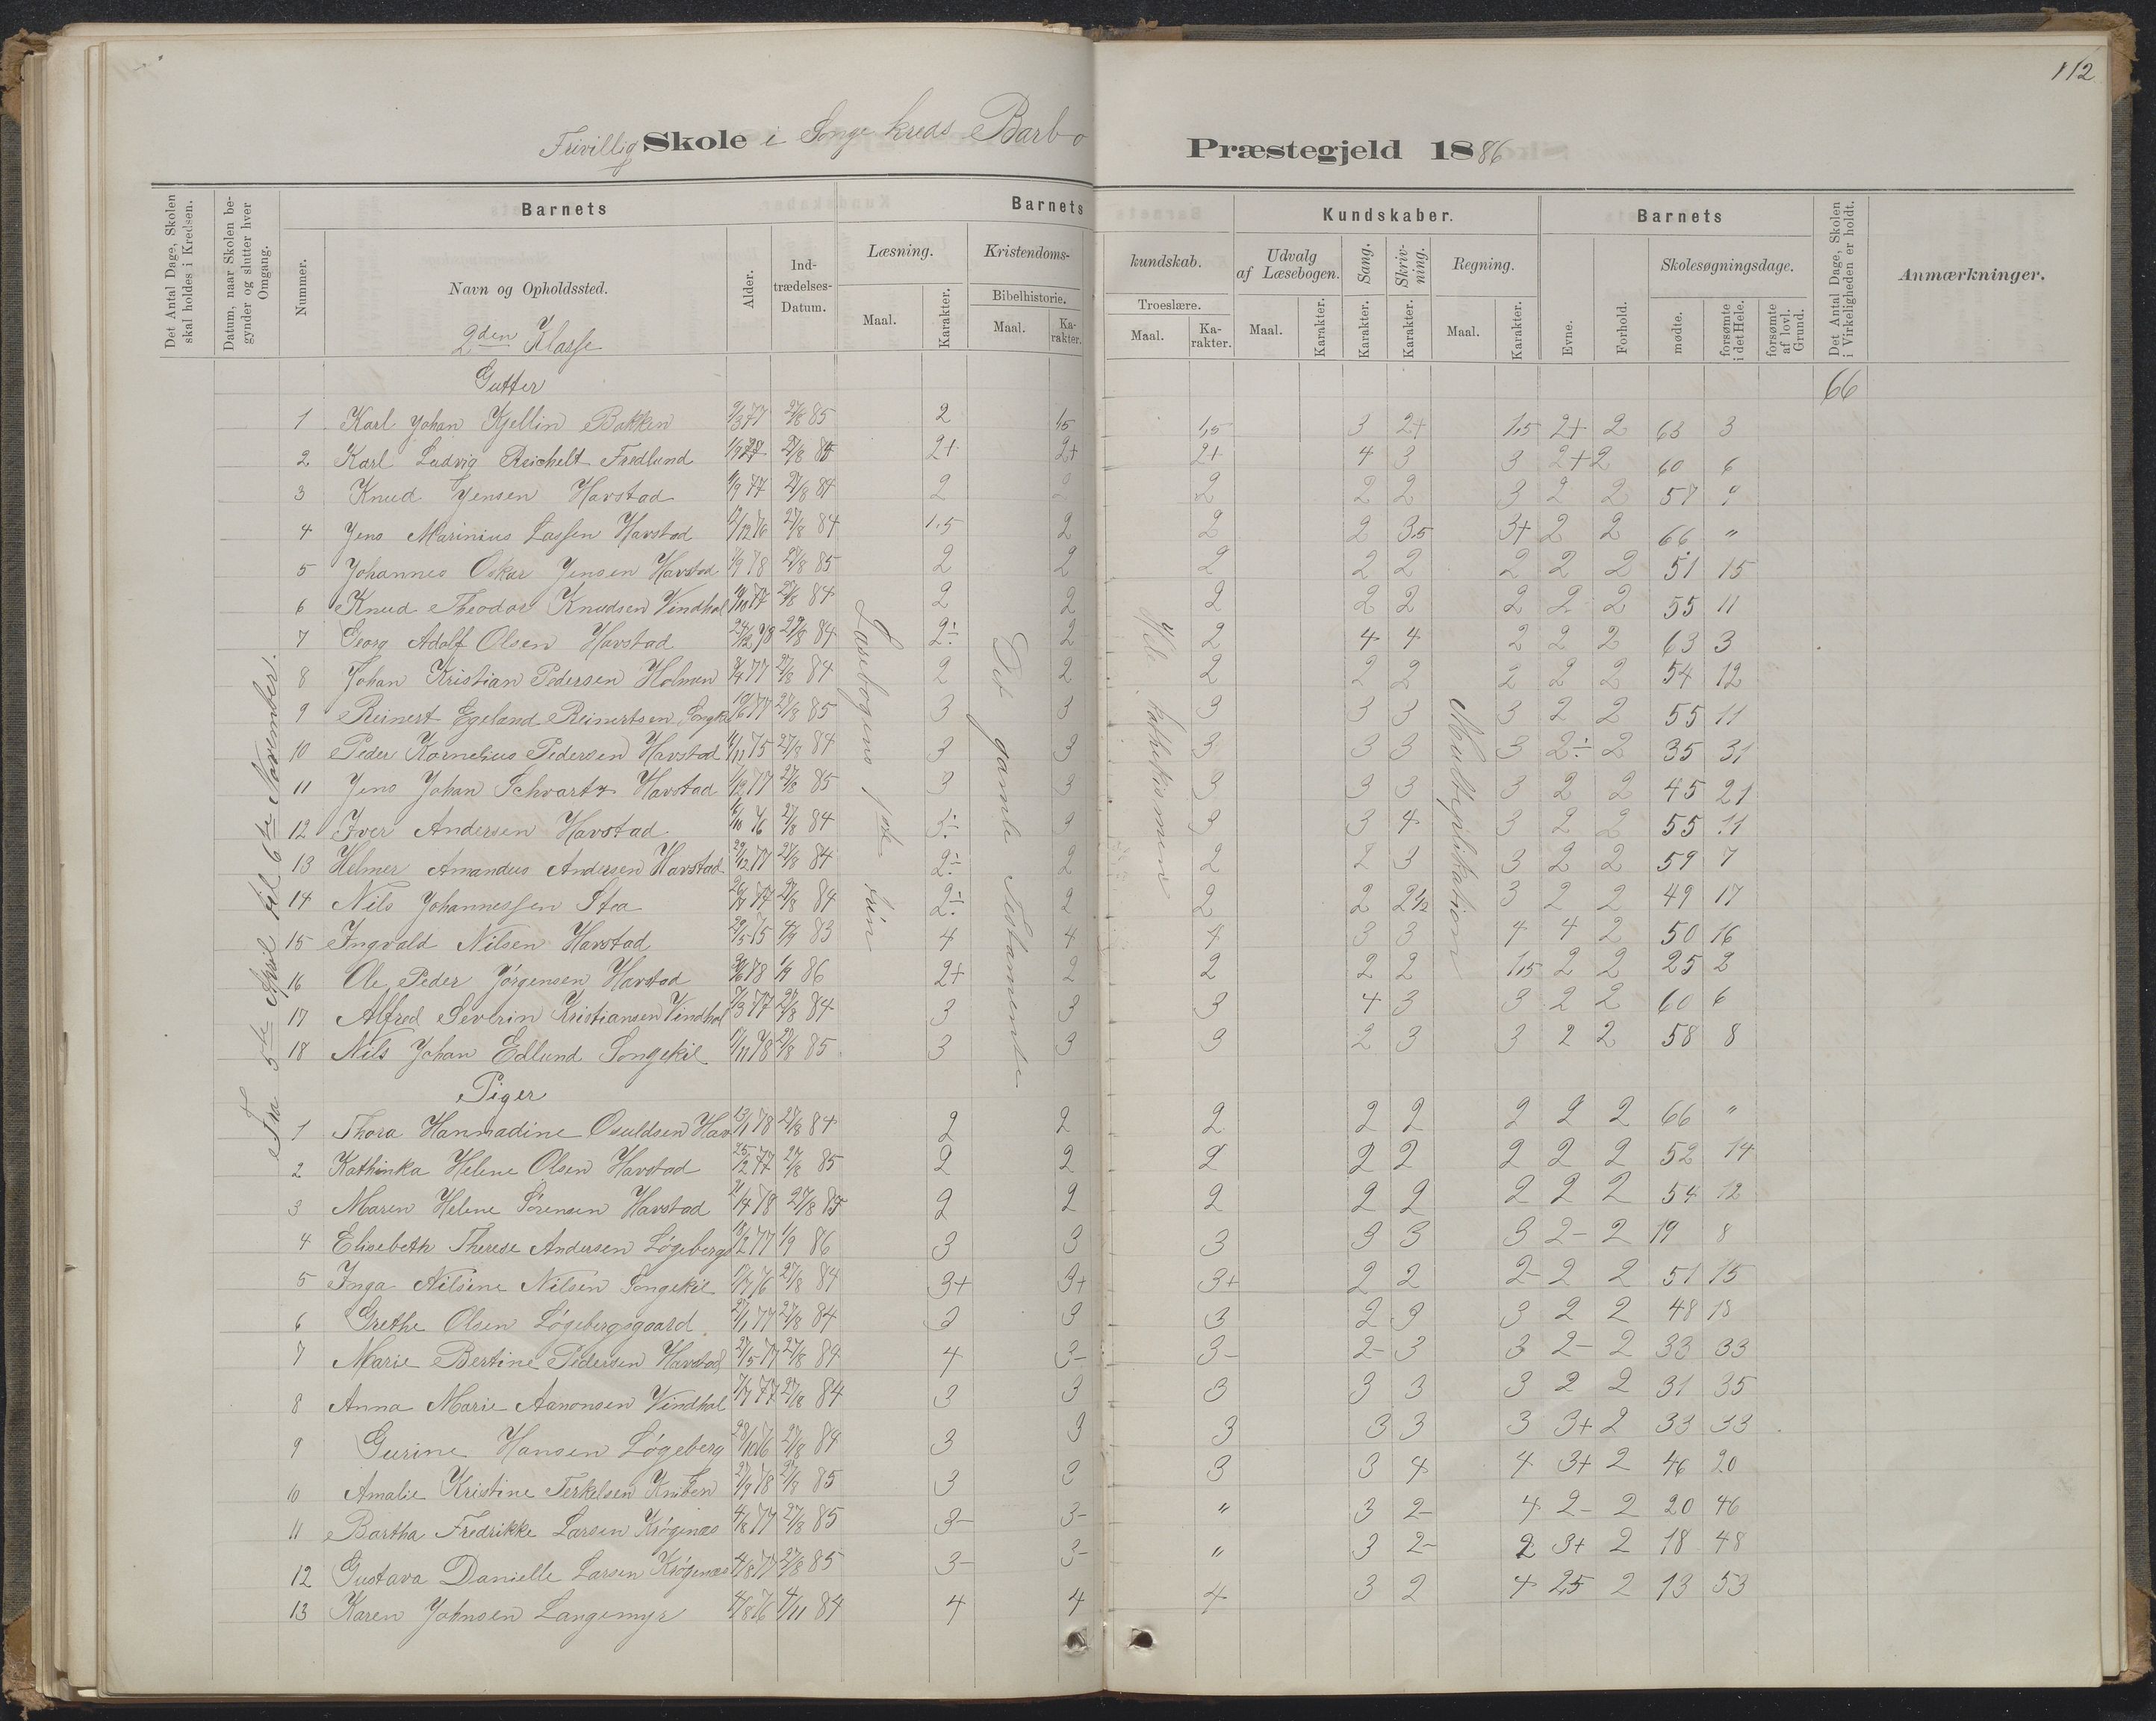 112
Frivillig Skole i Songe kreds Barbo Præstegjeld 1886
Det Antal Dage, Skolen skal holdes i Kredsen.
Datum, naar Skolen begynder og slutter hver Omgang.
Barnets
Nummer.
Navn og Opholdssted.
Alder.
Indtrædelses-Datum.
Barnets Kundskaber.
Læsning.
Maal.
Karakter.
Kristendomskundskab.
Bibelhistorie.
Maal.
Karakter.
Troeslære.
Maal.
Karakter.
Udvalg af Læsebogen.
Maal.
Karakter.
Sang.
Karakter.
Skrivning.
Karakter.
Regning.
Maal.
Karakter.
Barnets
Evne.
Forhold.
Skolesøgningsdage.
mødte.
forsømte i det Hele.
forsømte af lovl. Grund.
Det Antal Dage, Skolen i Virkeligheden er holdt.
Anmærkninger.
2den Klasse
Gutter
66
Fra 5te April til 6te November.
Læsebogens 1ste trin
Det gamle Testamente
Hele katekismen
Multiplikation
1 Karl Johan Kjellin Bakken 9/3 77 27/8 85 2 1,5 1,5 3 2+ 1,5 2+ 2 63 3
2 Karl Ludvig Reichelt Fredlund 27/8 85 2+ 2+ 2+ 4 3 3 2+ 2 60 6
3 Knud Jensen Havstad 6/9 77 27/8 84 2 2 2 2 2 3 2 2 57 9
4 Jens Marinius Lassen Havstad 12/12 76 27/8 84 1.5 2 2 2 3.5 3+ 2 2 66 "
5 Johannes Oskar Jensen Havstad 7/9 78 27/8 85 2 2 2 2 2 2 2 2 51 15
6 Knud Theodor Knudsen Vindhol 77 27/8 84 2 2 2 2 2 2 2 2 55 11
7 Georg Adolf Olsen Havstad 24/12 78 27/8 84 2÷ 2 2 4 4 2 2 2 63 3
8 Johan Kristian Pedersen Holmen 8/4 77 27/8 84 2 2 2 2 2 2 2 2 54 12
9 Reinert Egeland Reinertsen Songekil 10/6 77 27/8 85 3 3 3 3 3 3 2 2 55 11
10 Peder Kornelius Pedersen Havstad 75 27/8 84 3 3 3 3 3 3 2÷ 2 35 31
11 Jens Johan Schvartz Havstad 77 27/8 85 3 3 3 3 3 3 2 2 45 21
12 Iver Andersen Havstad 6/10 76 27/8 84 3÷ 3 3 3 4 3 2 2 55 11
13 Helmer Amandus Andersen Havstad 29/12 77 27/8 84 2÷ 2 2 2 3 3 2 2 59 7
14 Nils Johannessen Stea 77 27/8 84 2÷ 2 2 2 2 1/2 3 2 2 49 17
15 Ingvald Nilsen Havstad 29/5 75 83 4 4 4 3 3 4 4 2 50 16
16 Ole Peder Jørgensen Havstad 78 1/9 86 2+ 2 2 2 2 1,5 2 2 25 2
17 Alfred Severin Kristiansen Vindhol 7/3 77 27/8 84 3 3 3 4 3 3 2 2 60 6
18 Nils Johan Edlund Songekil 78 27/8 85 3 3 3 2 3 3 2 2 58 8
Piger
1 Thora Hannadine Osuldsen Hav 23/1 78 27/8 84 2 2 2 2 2 2 2 2 66 "
2 Kathinka Helene Olsen Havstad 25/12 77 27/8 85 2 2 2 2 2 2 2 2 52 14
3 Maren Helene Sørensen Havstad 21/4 78 27/8 85 2 2 2 2 2 2 2 2 54 12
4 Elisebeth Therese Andersen Løgeberg 18/2 77 1/9 86 3 3 3 3 3 3 2- 2 19 8
5 Inga Nilsine Nilsen Songekil 76 27/8 84 3+ 3+ 3+ 2 2 2- 2 2 51 15
6 Grethe Olsen Løgebergsgaard 27/1 77 27/8 84 3 3 3 2 3 3 2 2 48 18
7 Marie Bertine Pedersen Havstad 27/5 77 27/8 84 4 3- 3- 2- 3 3 2- 2 33 33
8 Anna Marie Aanonsen Vindhol 77 27/8 84 3 3 3 3 3 3 2 2 31 35
9 Gurine Hansen Løgeberg 28/10 76 27/8 84 3 3 3 3 3 3 3+ 2 33 33
10 Amalie Kristine Terkelsen Kniben 27/9 78 27/8 85 3 3 3 3 4 4 3+ 2 46 20
11 Bartha Fredrikke Larsen Krøgenæs 4/8 77 27/8 85 3- 3- " 3 2- 4 2- 2 20 46
12 Gustava Danielle Larsen Krøgenæs 4/8 77 27/8 85 3- 3- " 3 2- 2 3+ 2 18 48
13 Karen Johnsen Langemyr 4/8 76 4/11 84 4 4 4 3 2 4 2,5 2 13 53